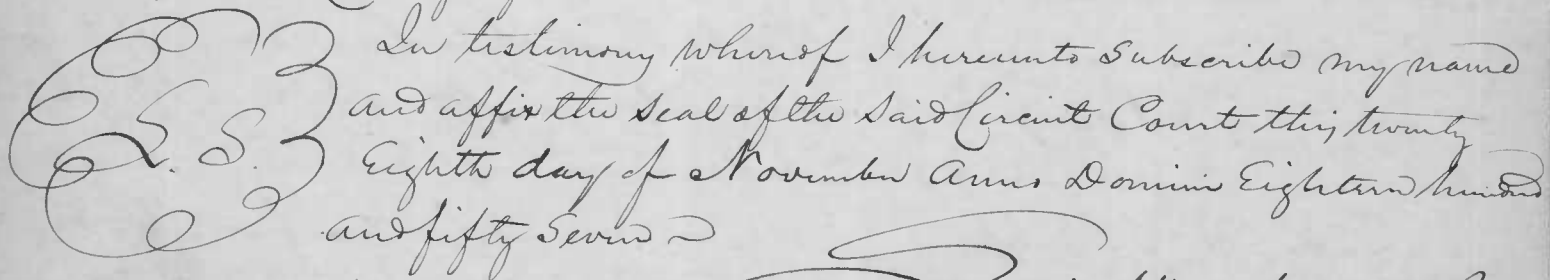 In testimony whereof I hereunto Subscribe my name
L. S. and affix the seal of the said Circuit Court this twenty
Eighth day of November Anno Domini Eighteen hundred
and fifty Seven